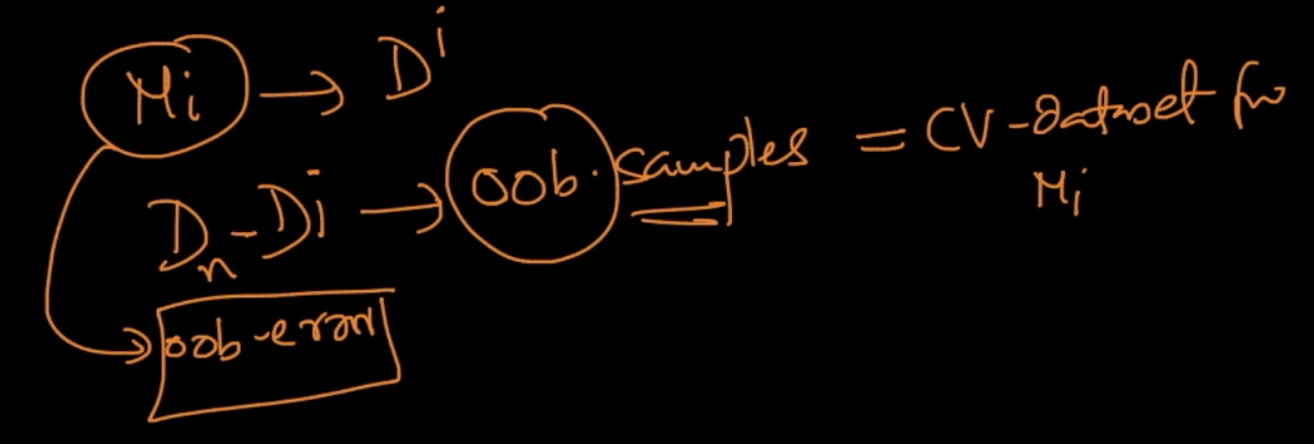 Mi → Dⁱ
Dn - Di → oob. samples = CV-dataset for
Mi
oob-error